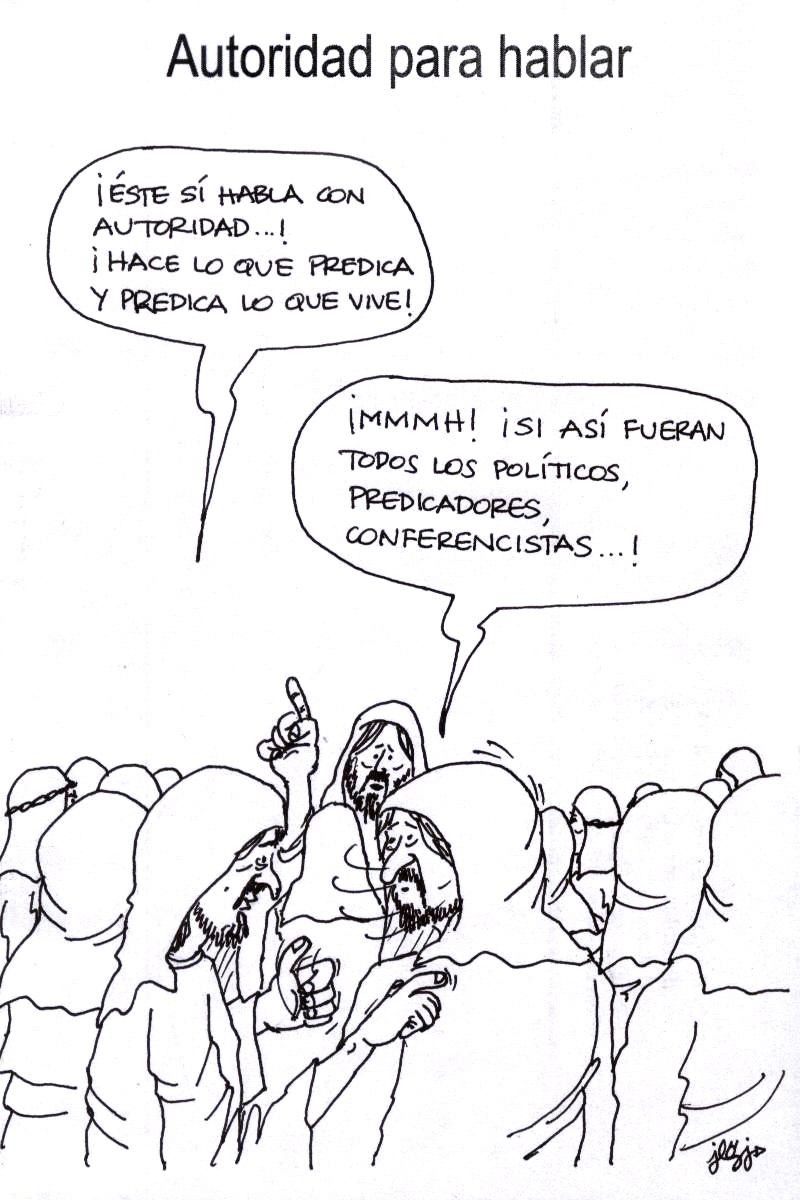 Autoridad para hablar
¡ÉSTE SÍ HABLA CON
AUTORIDAD...!
¡HACE LO QUE PREDICA
Y PREDICA LO QUE VIVE!
¡MMMH! ¡SI ASÍ FUERAN
TODOS LOS POLÍTICOS,
PREDICADORES,
CONFERENCISTAS...!